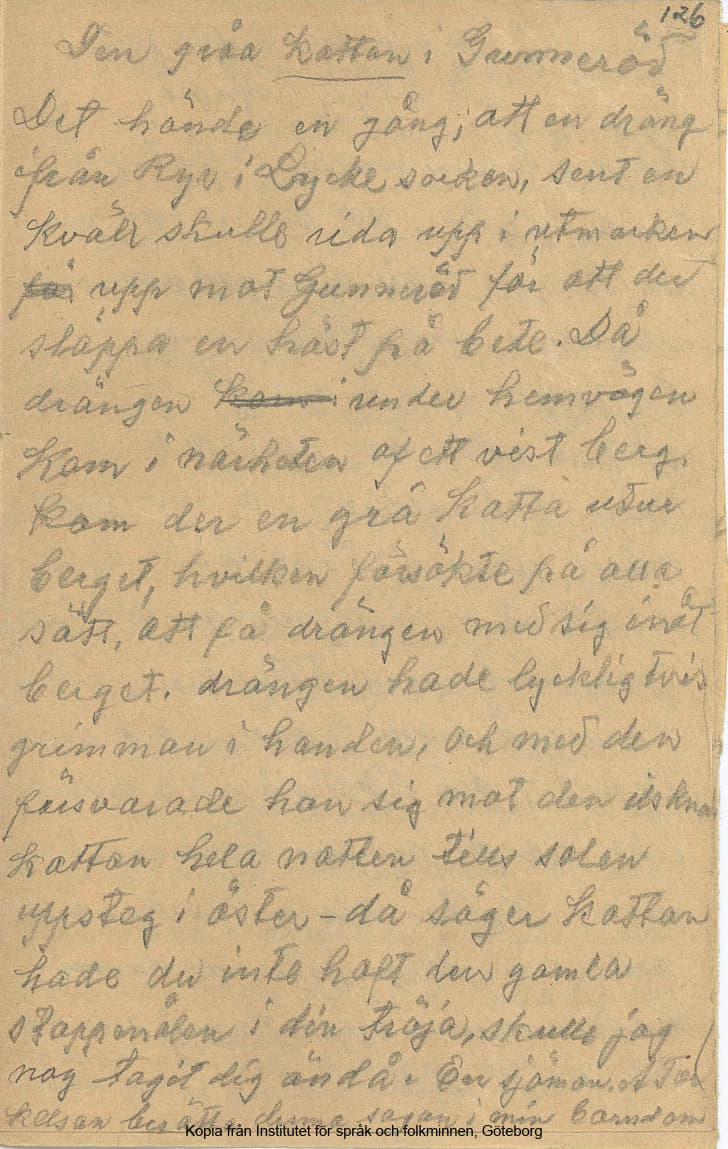 126
Den gråa Kattan i Gunneröd
Det hände en gång, att en dräng
ifrån Ryr i Lycke socken, sent en
kväll skulle rida upp i utmarken
för upp mot Gunneröd för att der
släppa en häst på bete. Då
drängen kom i under hemvägen
kom i närheten af ett vist berg,
kom der en grå Katta utur
berget, hvilken försökte på alla
sätt, att få drängen med sig inåt
berget. drängen hade lyckligtvis
grimman i handen, och med den
försvarade han sig mot den ilskna
kattan hela natten tills solen
uppsteg i öster – då säger Kattan
hade du inte haft den gamla
stoppenålen i din tröja, skulle jag
nog tagit dig ändå. En sjöman. A Tor
kelson berätta denna sagan i min barndom
Kopia från Institutet för språk och folkminnen, Göteborg